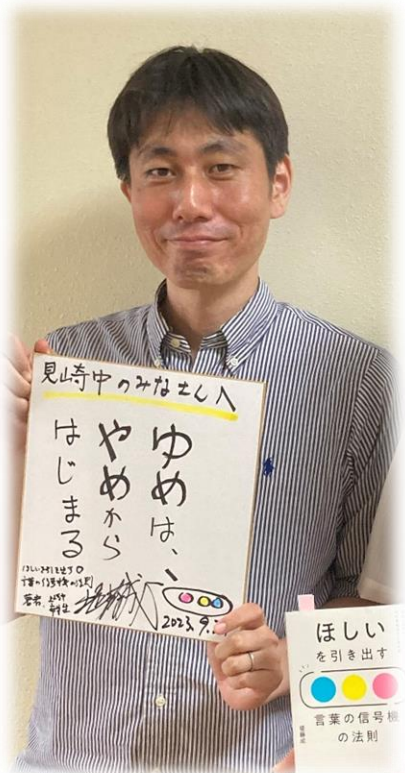 見崎中のみなさんへ
ゆめは、
やめから
はじまる
ほしいを引き出す
言葉の信号機の法則
著者
2023.9.
ほしい
を引き出す
言葉の信号機
の法則